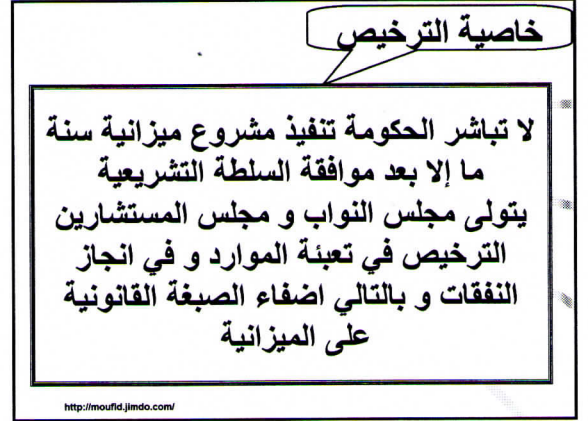 خاصية الترخيص
لا تباشر الحكومة تنفيذ مشروع ميزانية سنة
ما إلا بعد موافقة السلطة التشريعية
يتولى مجلس النواب و مجلس المستشارين
الترخيص في تعبئة الموارد و في انجاز
النفقات و بالتالي اضفاء الصبغة القانونية
على الميزانية
http://moufid.jimdo.com/